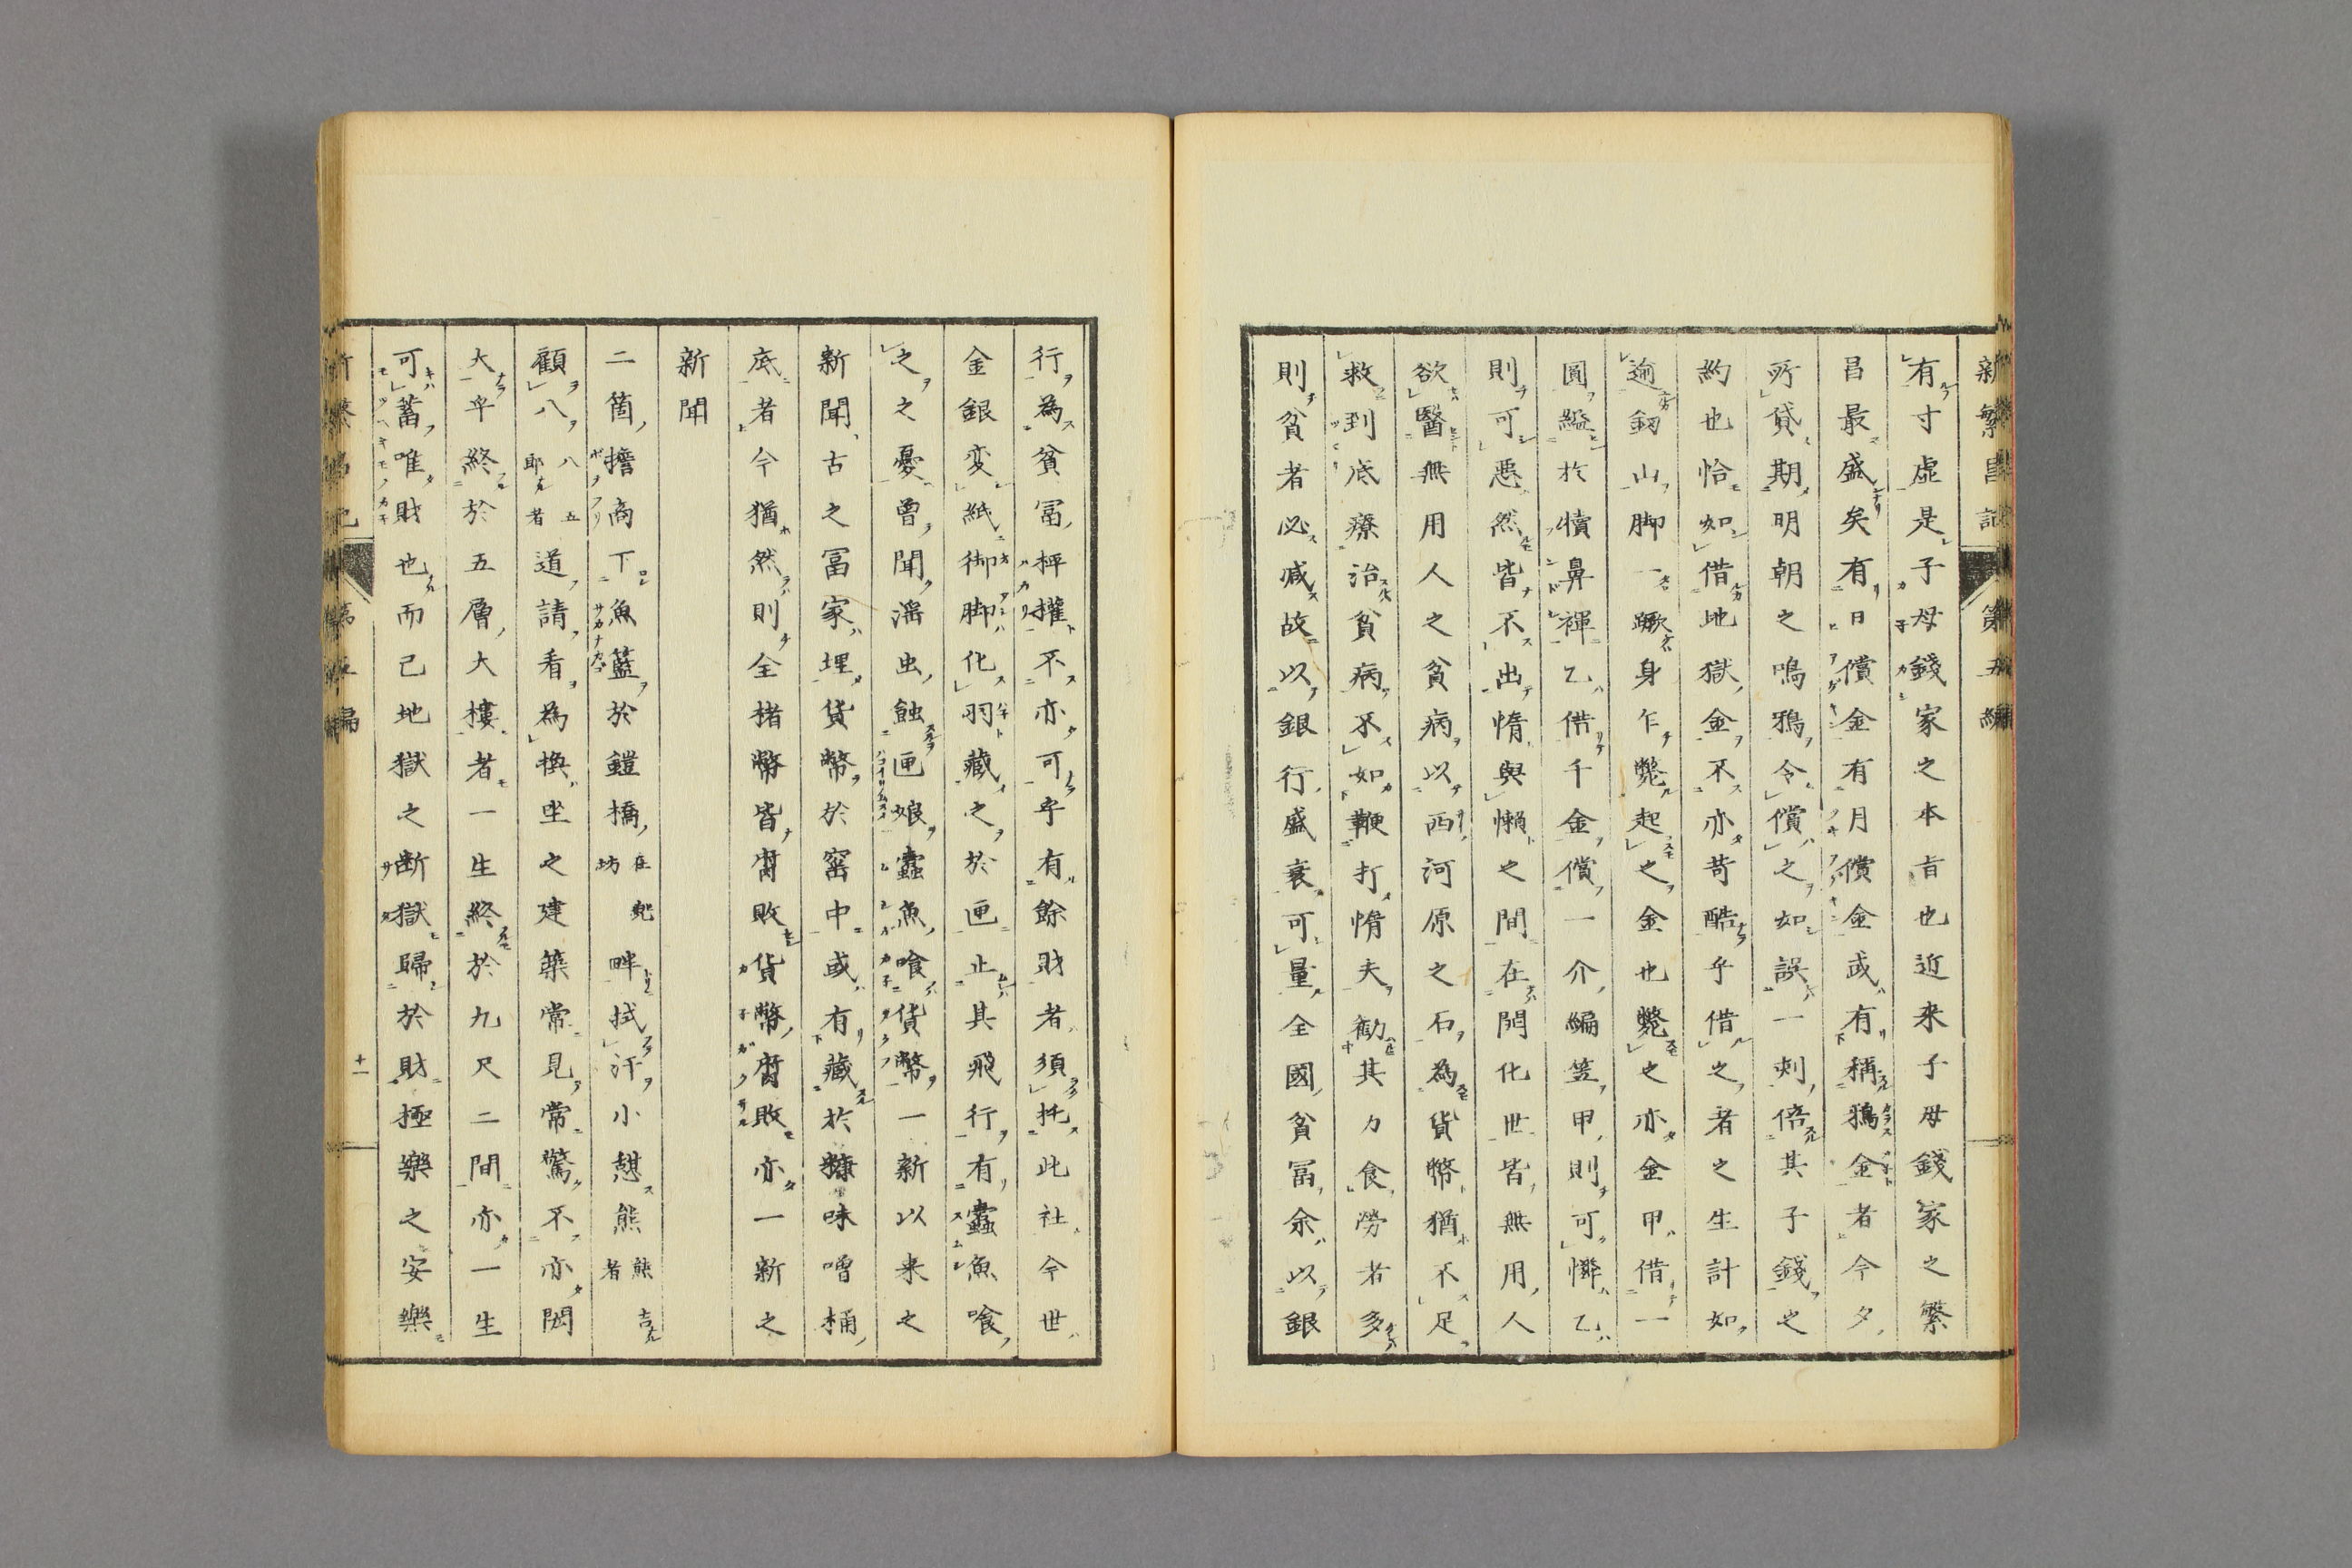 新繁昌記 第五編
有寸虚是子母錢家之本旨也近来子母錢家之繁
昌最盛矣有日償金有月償金或有稱鴉金者今夕
所貸期明朝之鳴鴉令償之如誤一刺倍其子錢之
約也恰如借地獄金不亦苛酷乎借之者之生計如
逾釼山脚一蹶身乍斃起之金也斃之亦金甲借一
圓縊於犢鼻褌乙借千金償一介編笠甲則可憐乙
則可惡然皆不出惰與懶之間在開化世皆無用人
欲醫無用人之貧病以西河原之石為貨幣猶不足
救到底療治貧病不如鞭打惰夫勸其力食勞者多
則貧者必减故以銀行盛衰可量全國貧冨余以銀
行為貧冨秤權不亦可乎有餘財者須托此社今世
金銀変紙御脚化羽藏之於匣止其飛行有蠧魚喰
之之憂曾聞滛虫蝕匣娘蠧魚喰貨幣一新以来之
新聞古之冨家埋貨幣於窖中或有藏於糠味噌桶
底者今猶然則全楮幣皆腐敗貨幣腐敗亦一新之
新聞
二箇擔商下魚籃於鎧橋在兜坊畔拭汗小憇熊熊吉者
顧八八五耶者道請看為換坐之建築常見常驚不亦閎
大乎終於五層大樓者一生終於九尺二間亦一生
可蓄唯財也而已地獄之断獄歸於財極樂之安樂
十一